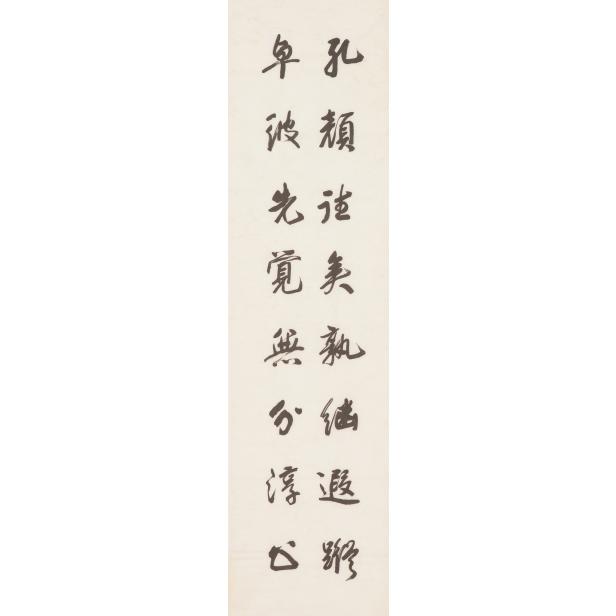 孔顏往矣孰繼遐蹤
卓彼先覺無分淳公